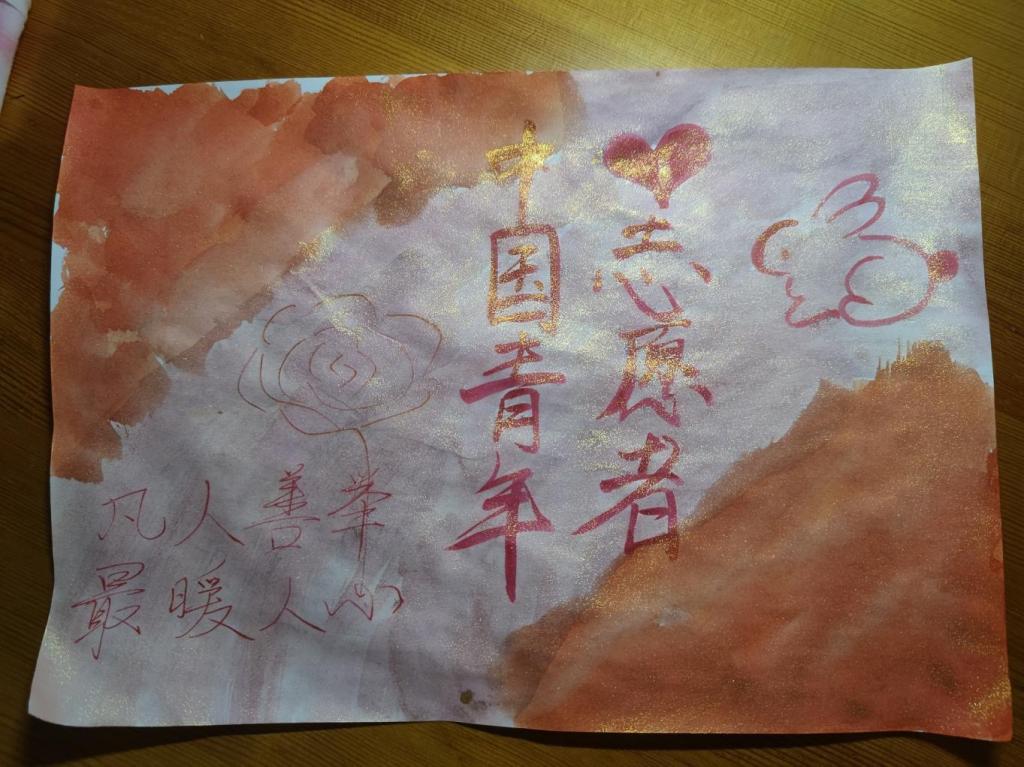 中国青年
志愿者
凡人善举
最暖人心